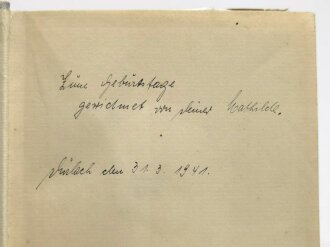 Zum Geburtstage
gewidmet von Deiner Mathilde.
den 31.3.1941.